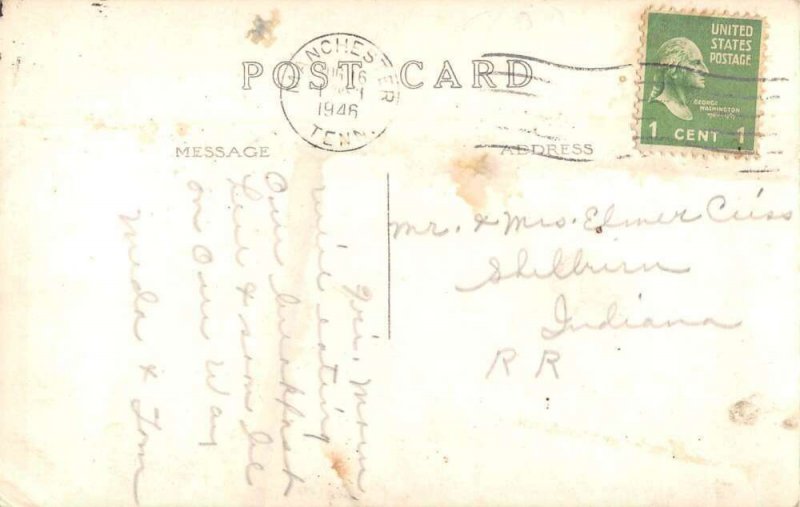 POST CARD
MANCHESTER
1946
TENN.
UNITED
STATES
POSTAGE
GEORGE
WASHINGTON
1 CENT 1
MESSAGE
ADDRESS
Fri. Morn,
we're eating
Our breakfast
here & soon be
on our way
Meda & Tom
Mr. & Mrs. Elmer
Shelburn
Indiana
R R